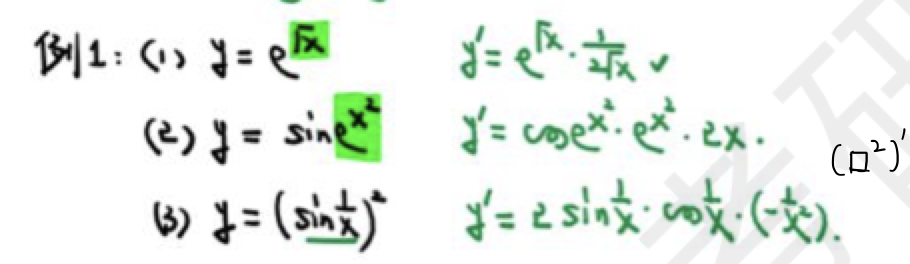 例1: (1) y = e^{√x}  y' = e^{√x} · \frac{1}{2√x} ✓
(2) y = sin e^{x^2}  y' = cos e^{x^2} · e^{x^2} · 2x.
(□^2)'
(3) y = (sin \frac{1}{x})^2  y' = 2 sin \frac{1}{x} · cos \frac{1}{x} · (-\frac{1}{x^2}).
考研